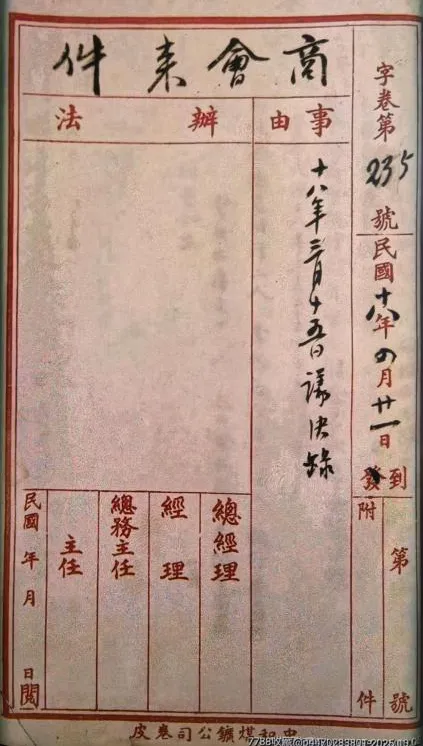 商會來件
字卷第235號
民國十八年四月廿一日
到
發
第號
附件
事由
十八年三月十五日議決錄
辦法
總經理
經理
總務主任
主任
民國年月日閱
中和煤鑛公司卷皮